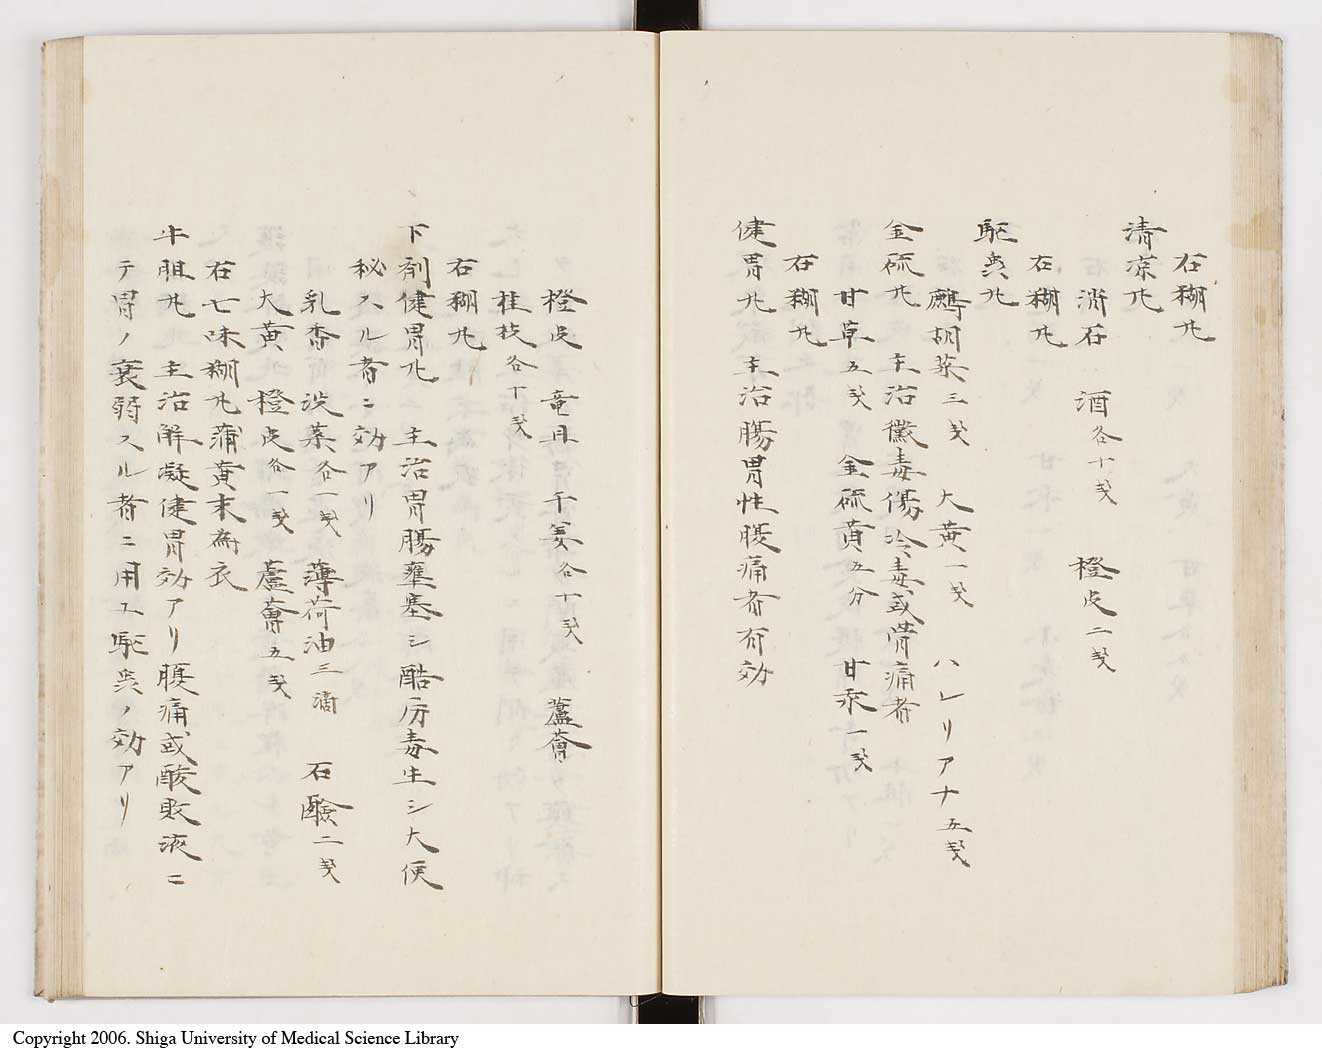 右糊丸
清凉丸
消石 酒各十戔 橙皮二戔
右糊丸
駆虫丸
鷓胡菜三戔 大黄一戔 ハレリアナ五戔
金硫丸 主治黴毒傷冷毒或骨痛者
甘草五戔 金硫黄五分 甘汞一戔
右糊丸
健胃丸 主治腸胃性腹痛者有効
橙皮 竜胆 干姜各十戔 蘆薈
桂枝各丁戔
右糊丸
下剤健胃丸 主治胃腸壅塞シ酷厉毒生シ大便
秘スル者ニ効アリ
乳香 没薬各一戔 薄荷油三滴 石鹸二戔
大黄 橙皮各一戔 蘆薈五戔
右七味糊丸蒲黄末為衣
牛胆丸 主治解凝健胃効アリ腹痛或酸敗液ニ
テ胃ノ衰弱スル者ニ用ユ駆虫ノ効アリ
Copyright 2006. Shiga University of Medical Science Library